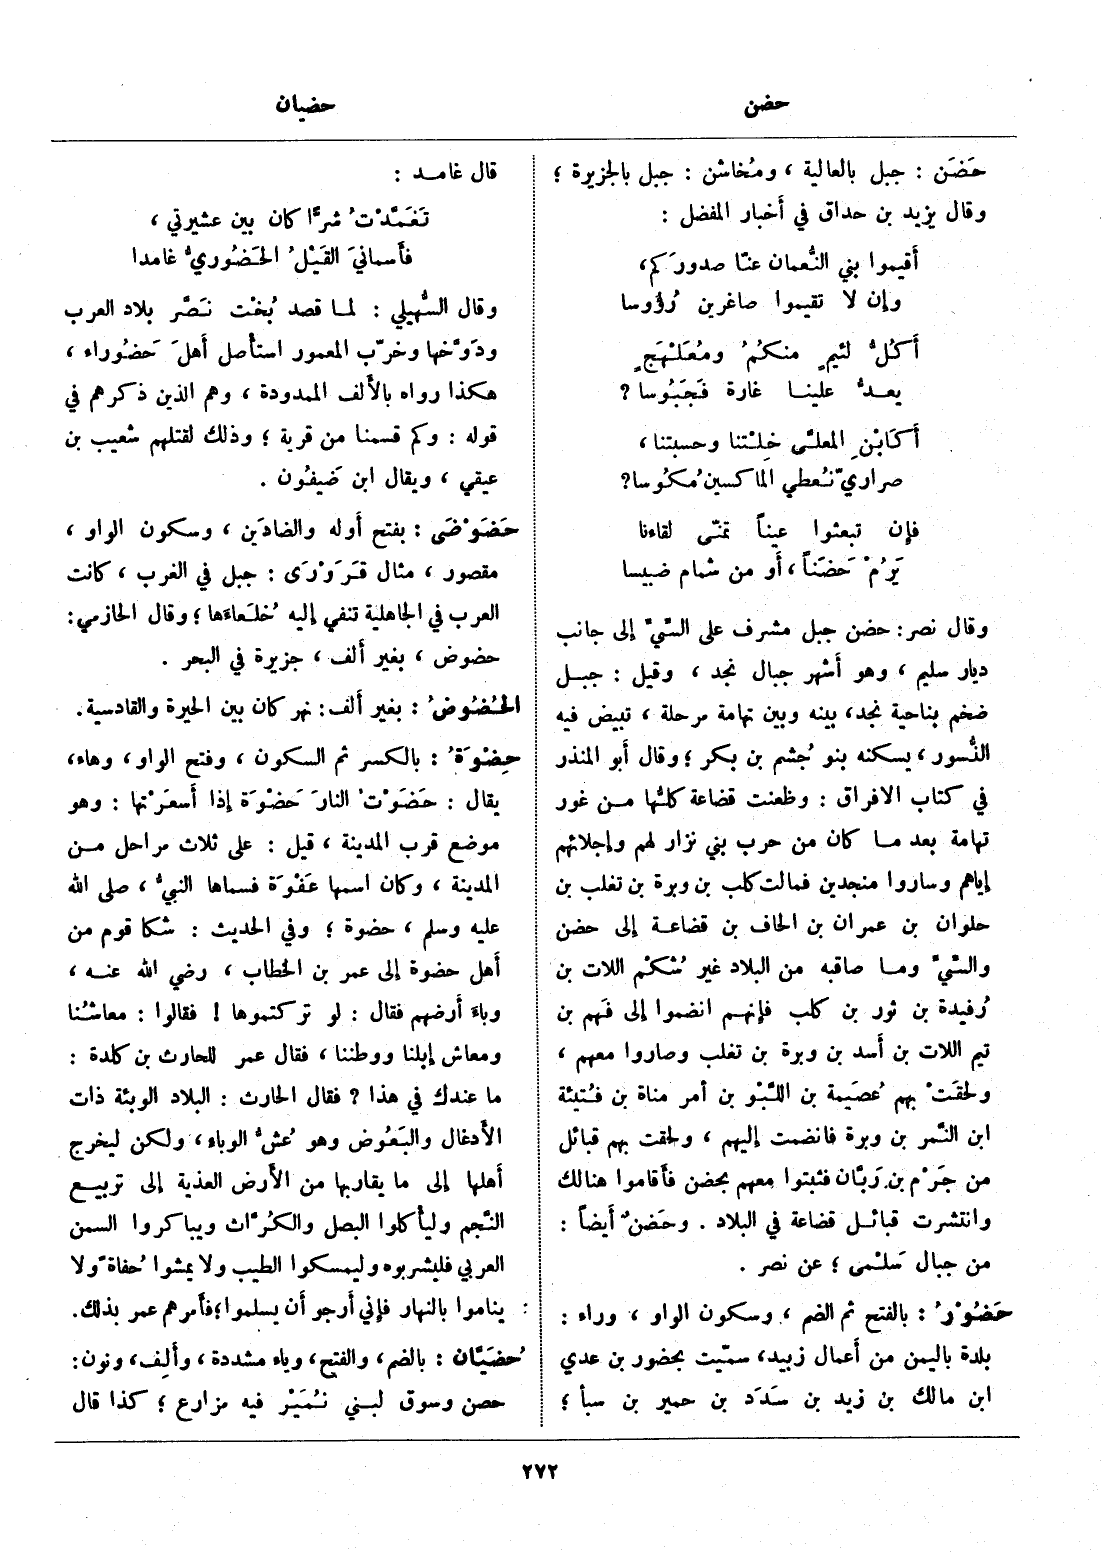 حضن
حضيان
حَضَن : جبل بالعالية ، ومُخاشن : جبل بالجزيرة ؛
وقال يزيد بن حداق في أخبار المفضل :
أقيموا بني النُّعمان عنّا صدورَكم،
وإن لا تقيموا صاغرين رُؤوسا
أكُلُّ لئيمٍ منكمُ ومُعَلْهَجٍ
يعدُّ علينا غارة فَجَبُوسا ؟
أكَابْنِ المعلّى خِلْتنا وحسبتنا ،
صراريّ نُعطي الماكسين مُكوسا؟
فإن تبعثوا عيناً تمنّى لقاءنا
يَرُمْ حَضَناً ، أو من شمام ضبيسا
وقال نصر : حضن جبل مشرف على السِّيّ إلى جانب
ديار سليم ، وهو أشهر جبال نجد ، وقيل : جبل
ضخم بناحية نجد، بينه وبين تهامة مرحلة ، تبيض فيه
النُّسور ، يسكنه بنو جُشم بن بكر ؛ وقال أبو المنذر
في كتاب الافراق : وظعنت قضاعة كلّها من غور
تهامة بعد ما كان من حرب بني نزار لهم وإجلائهم
إياهم وساروا منجدين فمالت كلب بن وبرة بن تغلب بن
حلوان بن عمران بن الحاف بن قضاعة إلى حضن
والسِّيّ وما صاقبه من البلاد غير شُكْم اللات بن
رُفيدة بن ثور بن كلب فإنهم انضموا إلى فهم بن
تيم اللات بن أسد بن وبرة بن تغلب وصاروا معهم ،
ولحقَتْ بهم عُصيمة بن اللَّبْو بن أمر مناة بن فُتيئة
ابن النَّمر بن وبرة فانضمت إليهم ، ولحقت بهم قبائل
من جَرْم بن رَبّان فثبتوا معهم بحضن فأقاموا هنالك
وانتشرت قبائل قضاعة في البلاد . وحَضنٌ أيضاً :
من جبال سَلْمى ؛ عن نصر .
حَضُوْرُ : بالفتح ثم الضم ، وسكون الواو ، وراء :
بلدة باليمن من أعمال زبيد، سمّيت بحضور بن عدي
ابن مالك بن زيد بن سَدَد بن حمير بن سبأ ؛
قال غامد :
تَغَمَّدْتُ شرًّا كان بين عشيرتي ،
فأسمانيَ القَيْلُ الحَضُوريُّ غامدا
وقال السُّهيلي : لما قصد بُخْت نَصَّر بلاد العرب
ودَوَّخها وخرّب المعمور استأصل أهلَ حَضُوراء ،
هكذا رواه بالألف الممدودة ، وهم الذين ذكرهم في
قوله : وكم قسمنا من قرية ؛ وذلك لقتلهم شعيب بن
عيقي ، ويقال ابن ضَيفُون .
حَضَوْضَى : بفتح أوله والضادَين ، وسكون الواو ،
مقصور ، مثال قَرَوْرَى : جبل في الغرب ، كانت
العرب في الجاهلية تنفي إليه خُلَعاءَها ؛ وقال الحازمي :
حضوض ، بغير ألف ، جزيرة في البحر .
الحُضُوضُ : بغير ألف : نهر كان بين الحيرة والقادسية .
حِضْوَةُ : بالكسر ثم السكون ، وفتح الواو ، وهاء،
يقال : حَضَوْتُ النارَ حَضْوَة إذا أسعَرْتها : وهو
موضع قرب المدينة ، قيل : على ثلاث مراحل من
المدينة ، وكان اسمها عَفْوَة فسماها النبيُّ ، صلى الله
عليه وسلم ، حضوة ؛ وفي الحديث : شكا قوم من
أهل حضوة إلى عمر بن الخطاب ، رضي الله عنه ،
وباءَ أرضهم فقال : لو تركتموها ! فقالوا : معاشُنا
ومعاش إبلنا ووطننا ، فقال عمر للحارث بن كلدة :
ما عندك في هذا ؟ فقال الحارث : البلاد الوبئة ذات
الأدغال والبَعُوض وهو عُشُّ الوباء ، ولكن ليخرج
أهلها إلى ما يقاربها من الأرض العذية إلى تربيع
النّجم وليأكلوا البصل والكُرّاث ويباكروا السمن
العربي فليشربوه وليمسكوا الطيب ولا يمشوا حُفاةً ولا
يناموا بالنهار فإني أرجو أن يسلموا ؛ فأمرهم عمر بذلك.
حُضَيَّان : بالضم ، والفتح، وياء مشددة ، وألف، ونون:
حصن وسوق لبني نُمَيْر فيه مزارع ؛ كذا قال
٢٧٢